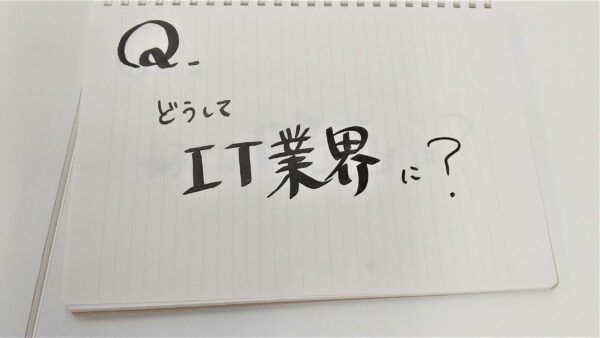 Q.
どうして
IT業界に?